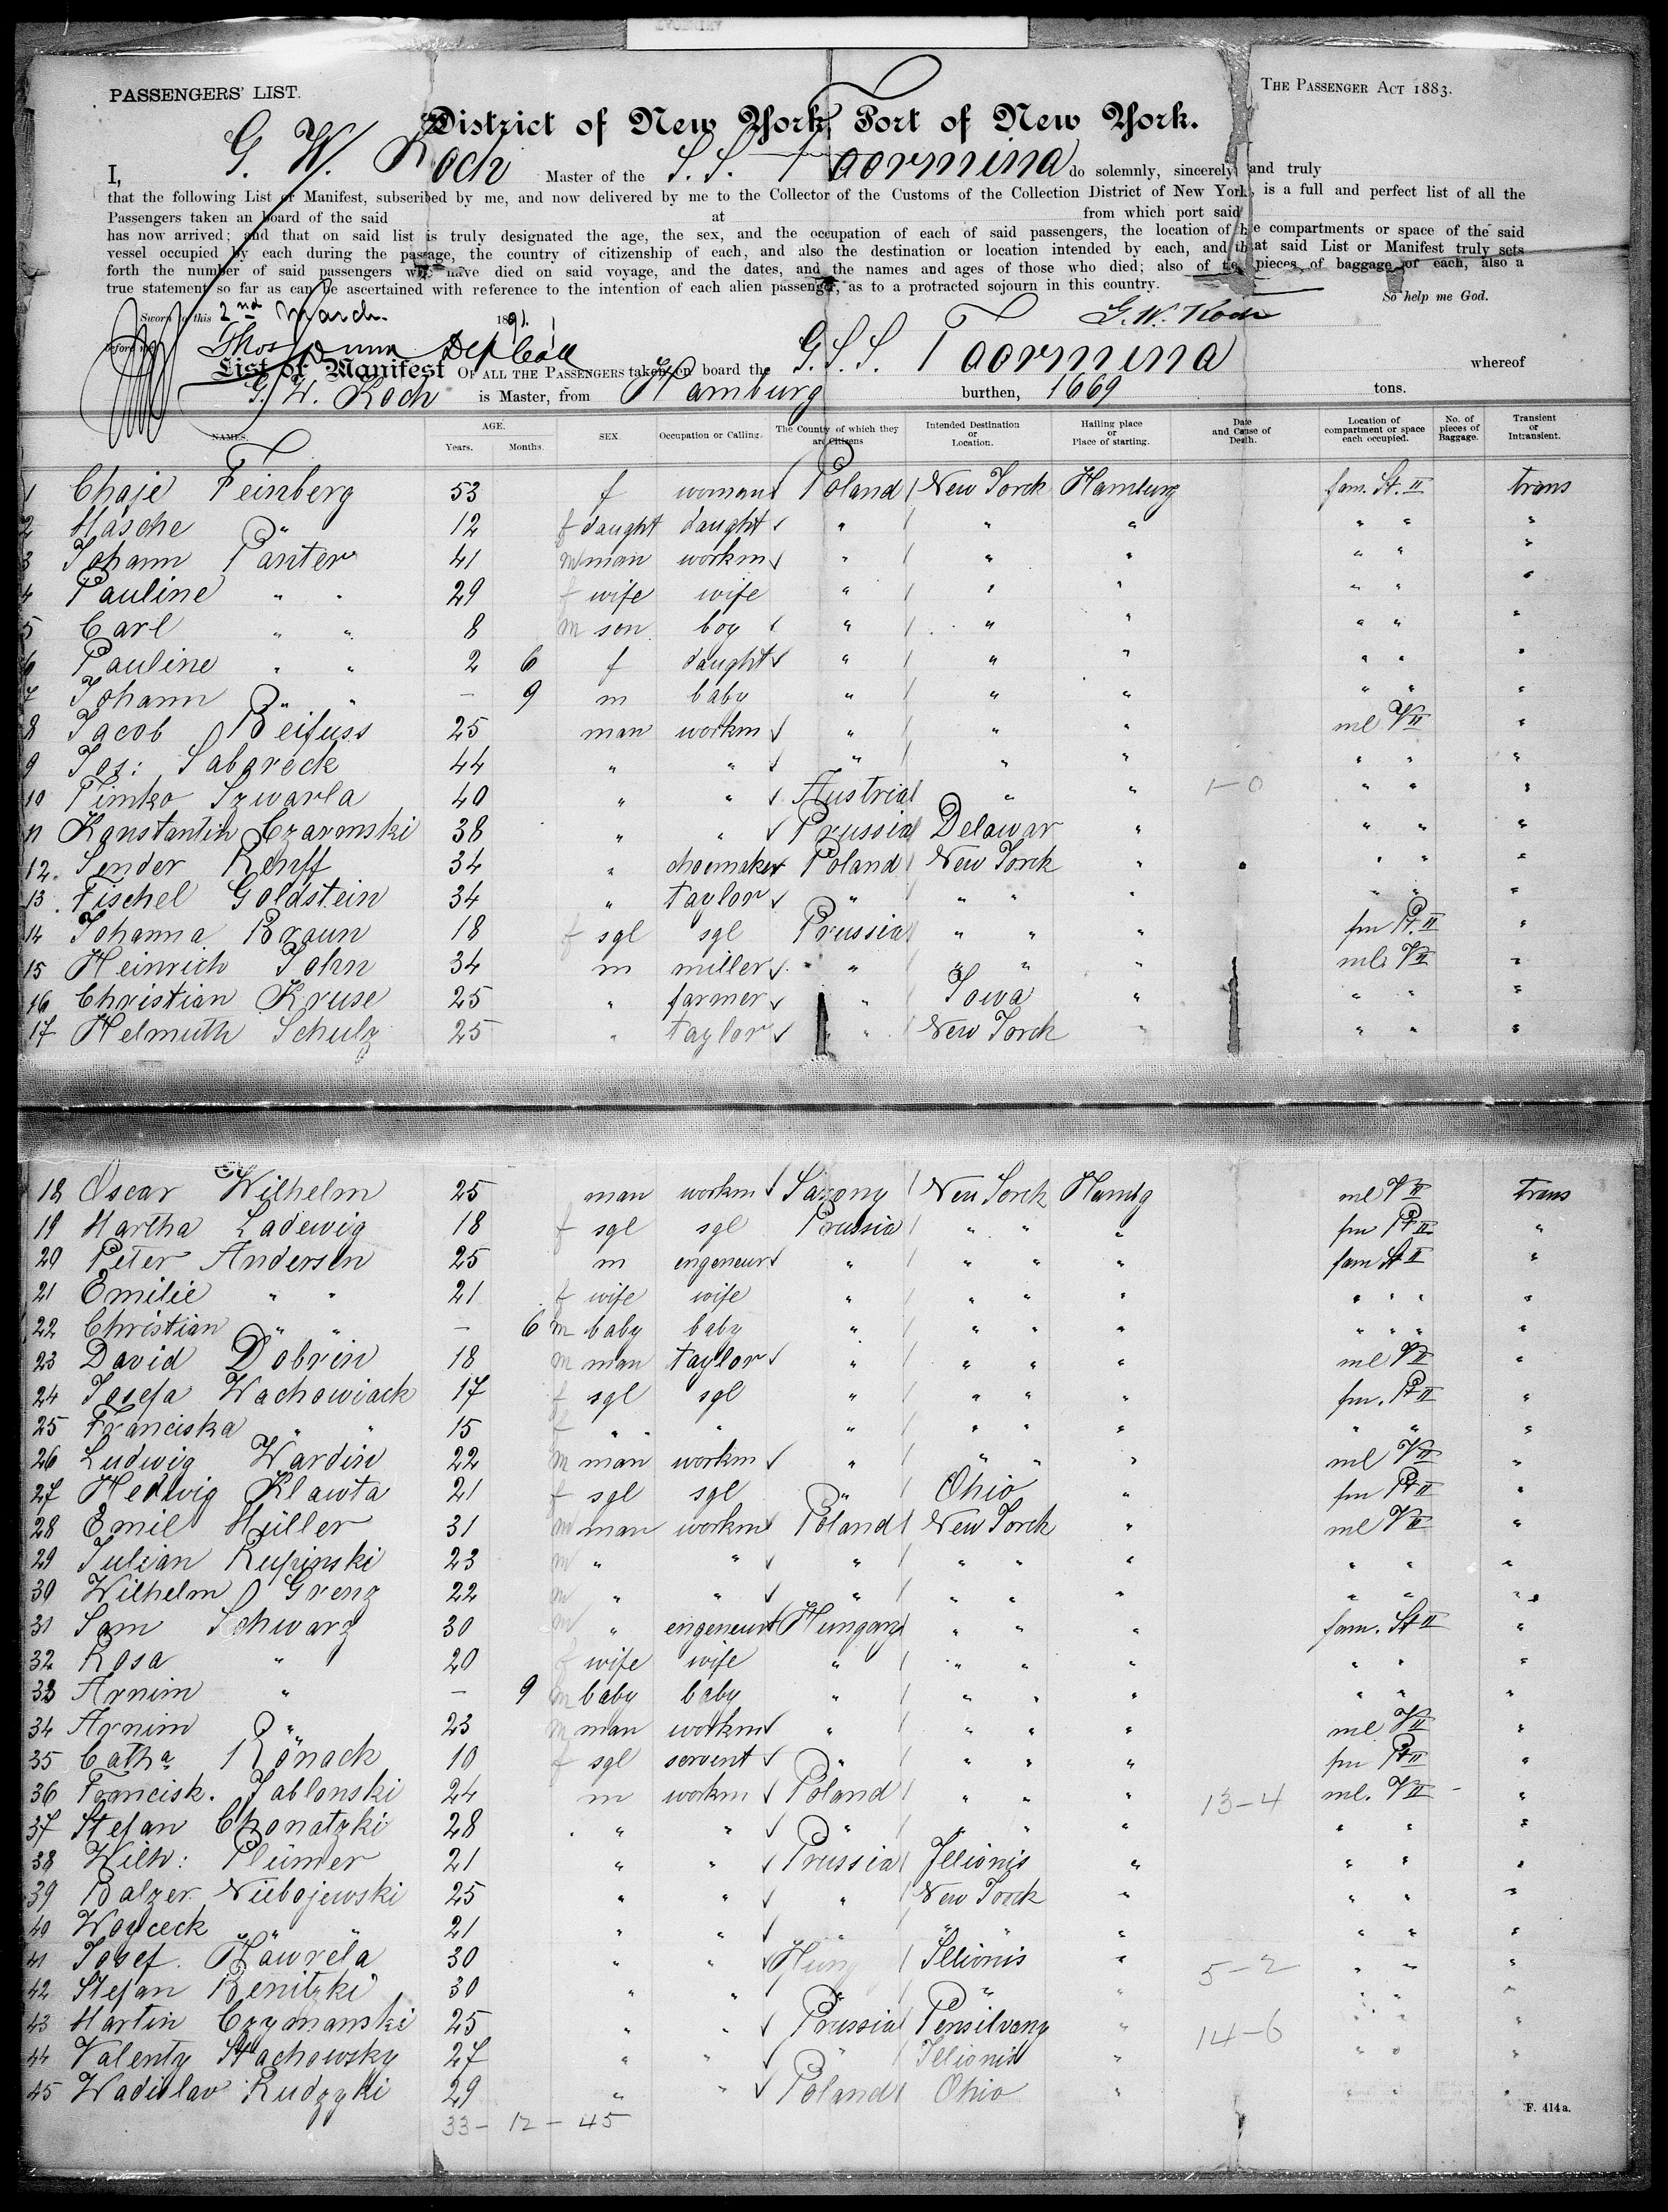 PASSENGERS' LIST.
THE PASSENGER ACT 1883.
District of New York, Port of New York.
I, G. W. Koch Master of the S.S. Taormina do solemnly, sincerely and truly
that the following List or Manifest, subscribed by me, and now delivered by me to the Collector of the Customs of the Collection District of New York, is a full and perfect list of all the
Passengers taken on board of the said at from which port said
has now arrived; and that on said list is truly designated the age, the sex, and the occupation of each of said passengers, the location of the compartments or space of the said
vessel occupied by each during the passage, the country of citizenship of each, and also the destination or location intended by each, and that said List or Manifest truly sets
forth the number of said passengers who have died on said voyage, and the dates, and the names and ages of those who died; also of the pieces of baggage of each, also a
true statement so far as can be ascertained with reference to the intention of each alien passenger, as to a protracted sojourn in this country. So help me God.
Sworn to this 2nd March 1891. G. W. Koch
before me Thos Dunn Dep Coll
List or Manifest OF ALL THE PASSENGERS taken on board the G.S.S. Taormina whereof
G. W. Koch is Master, from Hamburg burthen, 1669 tons.
NAMES. AGE. Years. Months. SEX. Occupation or Calling. The County of which they are Citizens Intended Destination or Location. Hailing place or Place of starting. Date and Cause of Death. Location of compartment or space each occupied. No. of pieces of Baggage. Transient or Intransient.
1 Chaje Feinberg 53 f woman Poland New Yorck Hamburg fam. St. II trans
2 Masche " 12 f daught daught " " " " " "
3 Johann Panter 41 m man workm " " " " " "
4 Pauline " " 29 f wife wife " " " " " "
5 Carl " " 8 m son boy " " " " " "
6 Pauline " " 2 6 f daught " " " " " "
7 Johann " " - 9 m baby " " " " " "
8 Jacob Beifuss 25 man workm " " " ml V II "
9 Jos: Sabareck 44 " " " " " " " "
10 Timko Szwarla 40 " " Austria " " 1-0 " " "
11 Konstantin Czaronski 38 " " Prussia Delawar " " " "
12. Sender Renff 34 " choemaker Poland New Yorck " " " "
13. Fischel Goldstein 34 " taylor " " " " " " "
14 Johanna Braun 18 f sgl sgl Prussia " " " fm Pt. II "
15 Heinrich John 34 m miller " " " " ml. V II "
16 Christian Kruse 25 " farmer " Iowa " " " "
17 Helmuth Schulz 25 " taylor " New Yorck " " " "
18 Oscar Wilhelm 25 man workm Saxony New Yorck Hambg ml V II trans
19 Martha Ladewig 18 f sgl sgl Prussia " " " fm Pt II "
20 Peter Andersen 25 m engeneur " " " " fam St II "
21 Emilie " " 21 f wife wife " " " " " " " "
22 Christian " " - 6 m baby baby " " " " " " " "
23 David Dobrin 18 m man taylor " " " " ml V II "
24 Josefa Wachowiack 17 f sgl sgl " " " " fm. Pt II "
25 Franciska " " 15 f " " " " " " " " " "
26 Ludwig Wardin 22 m man workm " " " " ml V II "
27 Hedwig Klawta 21 f sgl sgl " Ohio " fm Pt II "
28 Emil Müller 31 m man workm Poland New Yorck " ml V II "
29 Julian Rupinski 23 m " " " " " " " " "
30 Wilhelm Grenz 22 m " " " " " " " " "
31 Sam Schwarz 30 m " engeneur Hungary " " " fam. St II "
32 Rosa " 20 f wife wife " " " " " " "
33 Arnim " - 9 m baby baby " " " " " " "
34 Arnim " 23 m man workm " " " " ml V II "
35 Catha Rönack 10 f sgl servent " " " " fm Pt II "
36 Francisk. Jablonski 24 m workm Poland " " " 13-4 ml. V II "
37 Stefan Chonatzki 28 " " " " " " " " "
38 Wilh: Plümer 21 " " Prussia Jllionis " " " "
39 Balzer Niebojewski 25 " " " New Yorck " " " "
40 Woyceck " " 21 " " " " " " " "
41 Josef Hawrela 30 " " Hung Jllionis " 5-2 " " "
42 Stefan Renitzki 30 " " " " " " " "
43 Martin Czymanski 25 " " Prussia Pensilvany " 14-6 " " "
44 Valenty Stachowsky 27 " " " Jllionis " " " "
45 Wadislav Rudzyki 29 " " Poland Ohio " " " "
33- 12- 45
F. 414a.